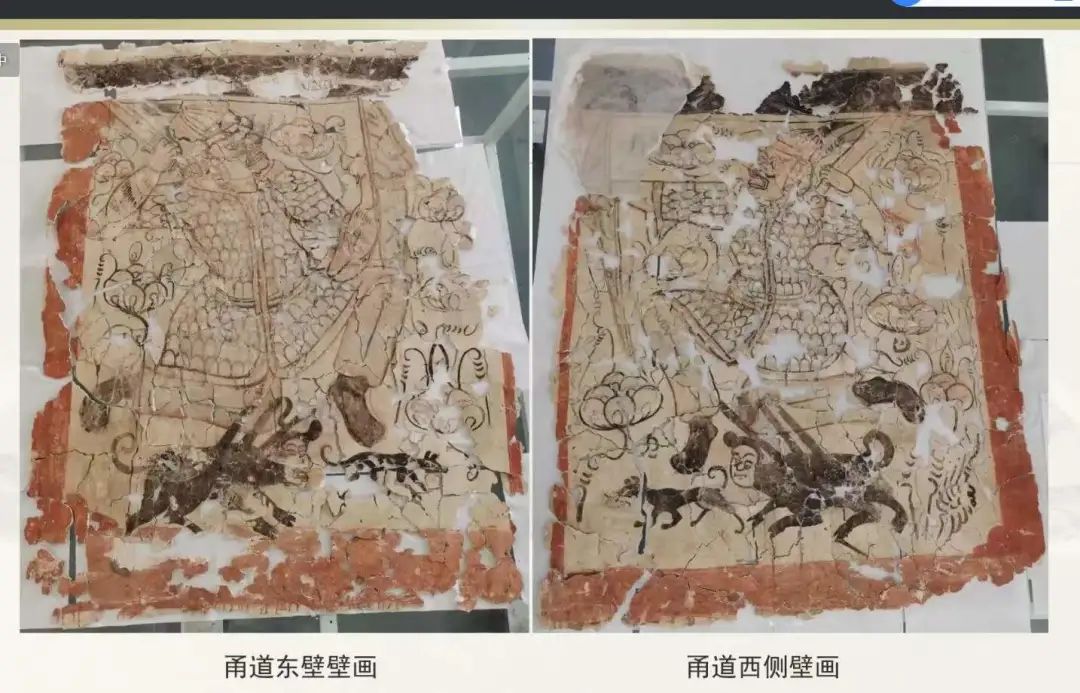 中
甬道东壁壁画
甬道西侧壁画